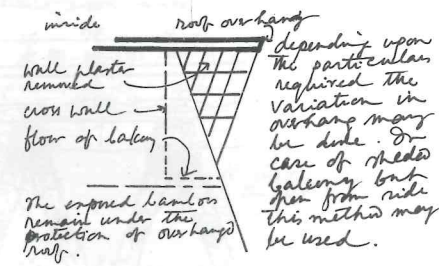 inside
roof overhang
wall plaster
removed
cross wall
floor of balcony
The exposed bamboos
remain under the
protection of overhanged
roof.
depending upon
the particulars
required the
variation in
overhang may
be done. In
case of shaded
balcony but
open from side
this method may
be used.